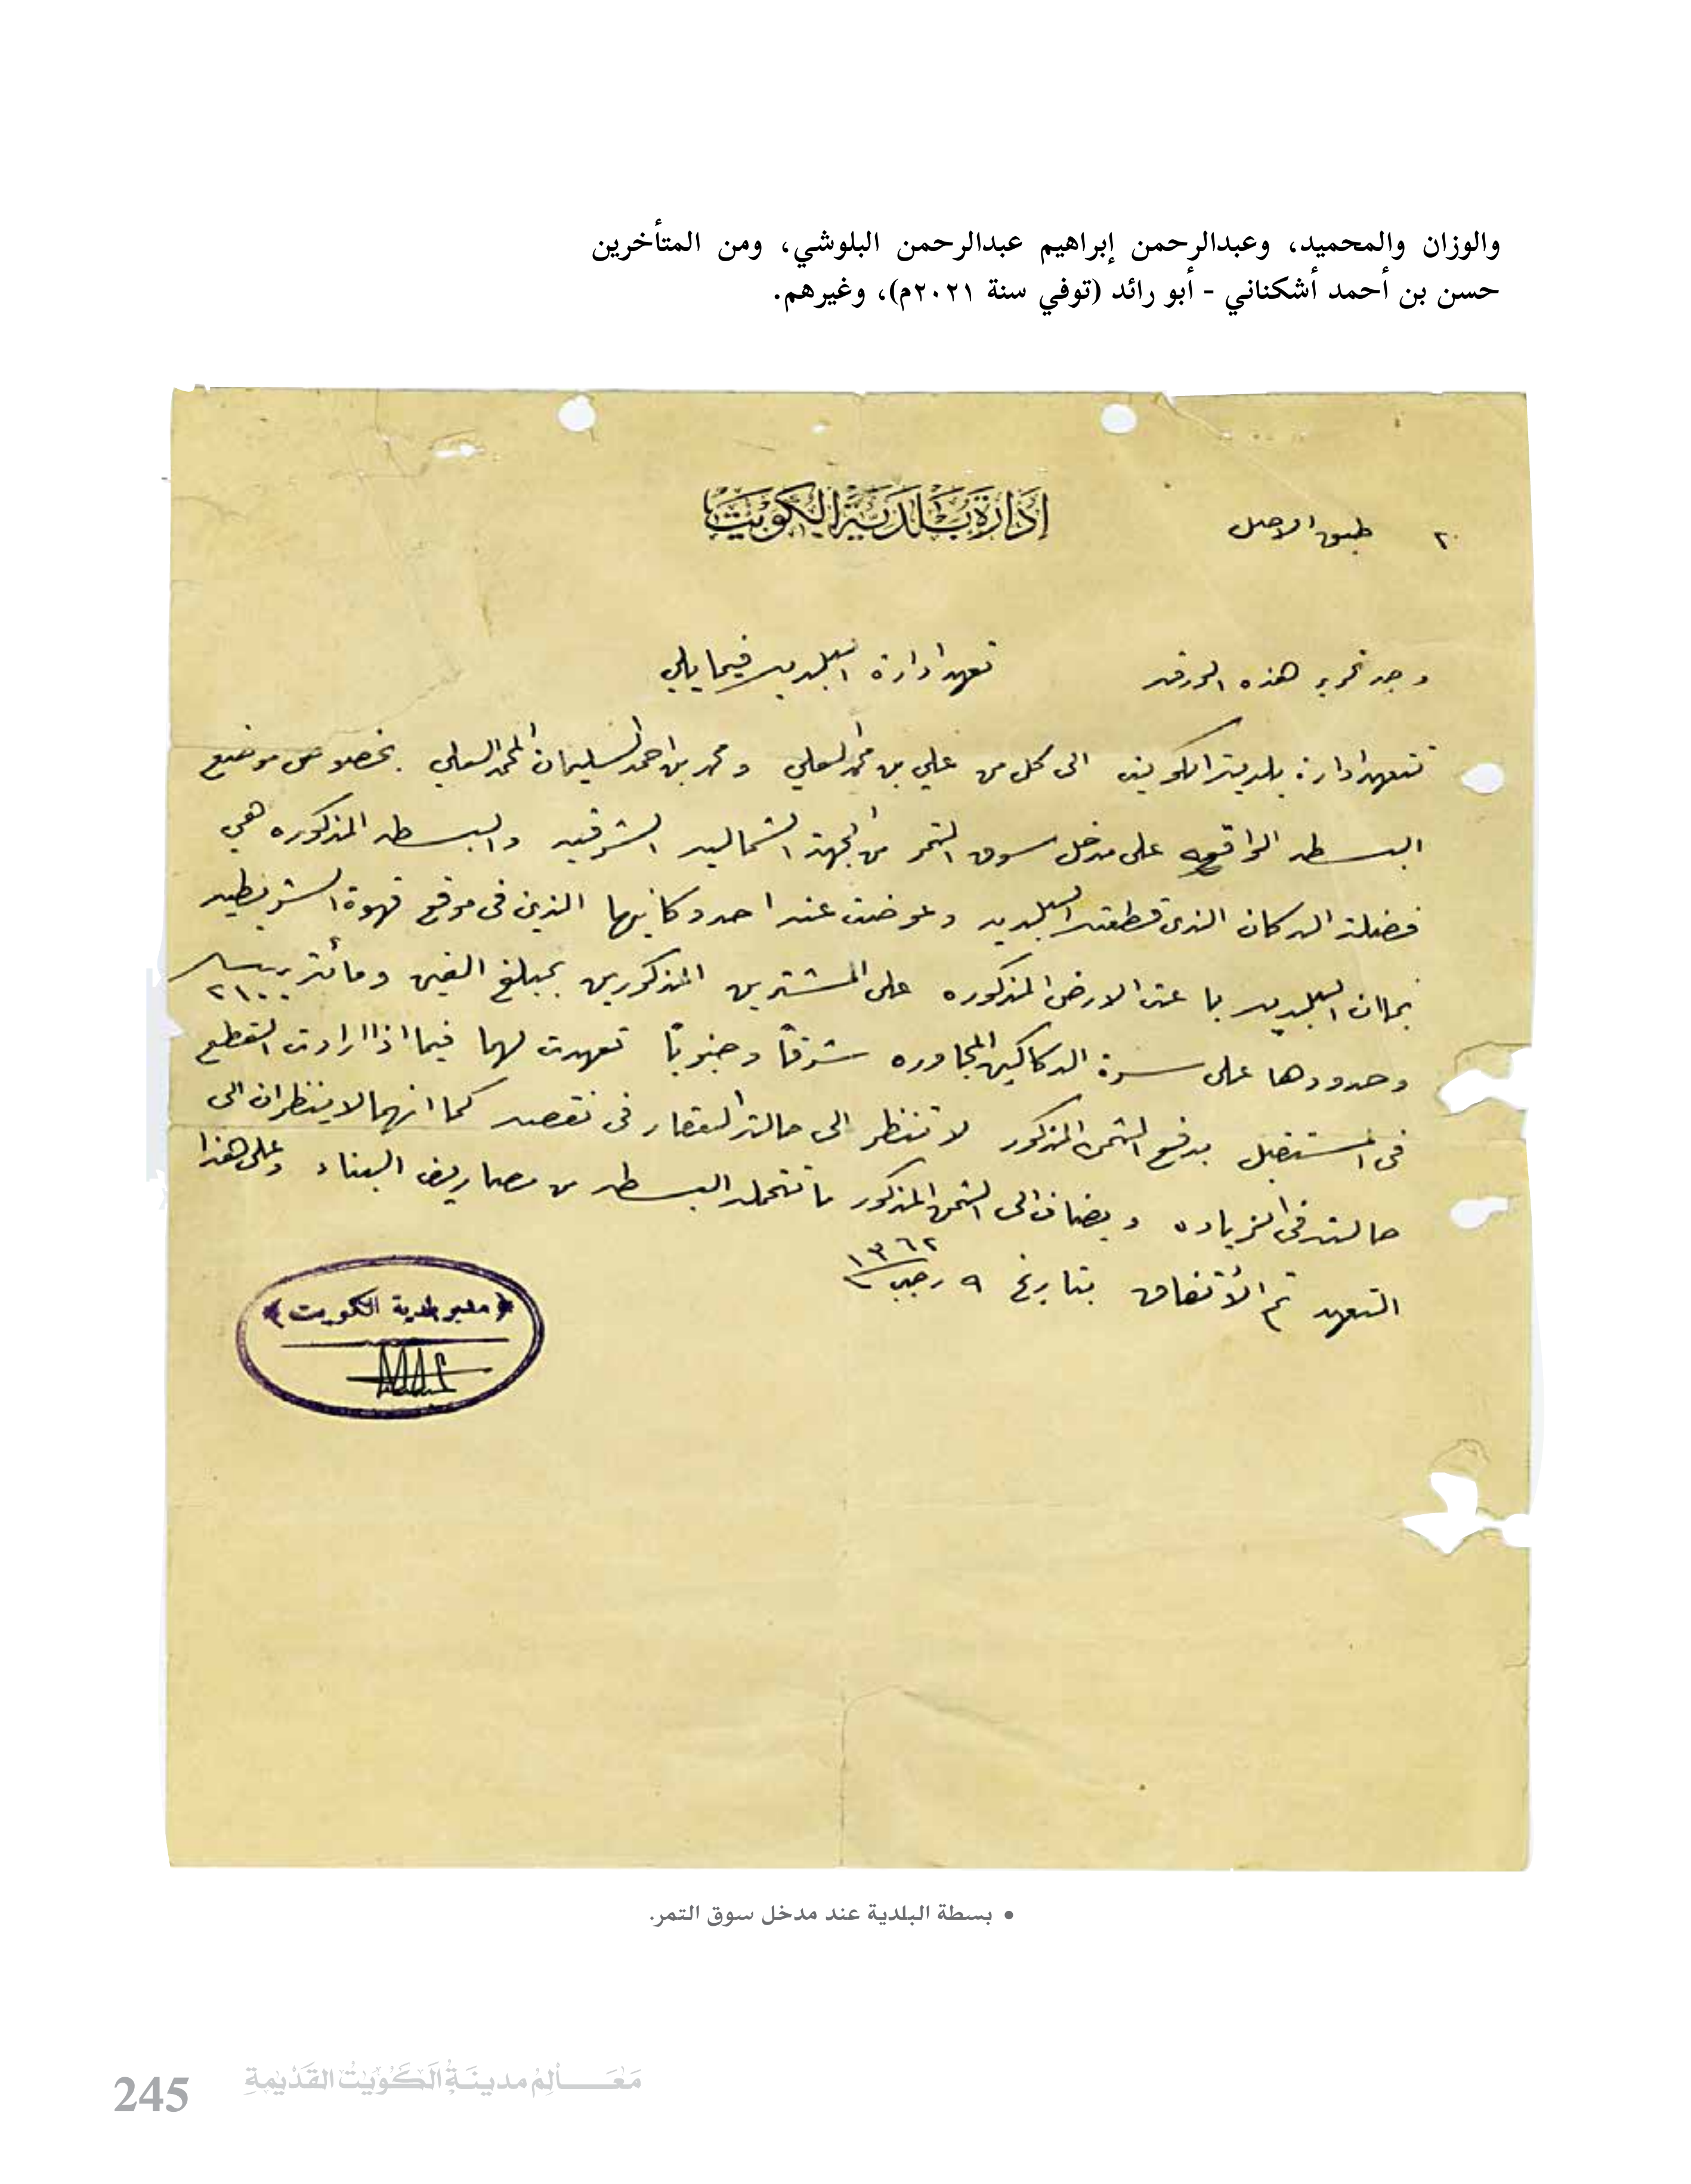 والوزان والمحميد، وعبدالرحمن إبراهيم عبدالرحمن البلوشي، ومن المتأخرين
حسن بن أحمد أشكناني - أبو رائد (توفي سنة ٢٠٢١م)، وغيرهم.
إدارة بلدية الكويت
٢ طبق الاصل
وجه تحرير هذه الورقه تعهد ادارة البلديه فيما يلي
تتعهد ادارة بلدية الكويت الى كل من علي بن محمد العلي ومحمد بن احمد السليمان المحمد العلي بخصوص موضع
البسطه الواقعه على مدخل سوق التمر من الجهة الشماليه الشرقيه والبسطه المذكوره هي
فضلة الدكان الذي قطعته البلديه وعوضت عنه احد دكانيها الذين في موقع قهوة الشريطيه
بما ان البلديه باعت الارض المذكوره على المشترين المذكورين بمبلغ الفين ومائة ربيه ٢١٠٠
وحدودها على سرة الدكاكين المجاوره شرقاً وجنوباً تعهدت لهما فيما اذا ارادت القطع
في المستقبل بدفع الثمن المذكور لا تنظر الى حالة العقار في نقصه كما انهما لا ينظران الى
حالته في الزياده ويضاف الى الثمن المذكور ما تتحمله البسطه من مصاريف البناء وعلى هذا
التعهد تم الأتفاق بتاريخ ٩ رجب ١٣٦٢
مدير بلدية الكويت
• بسطة البلدية عند مدخل سوق التمر.
245 معالم مدينة الكويت القديمة